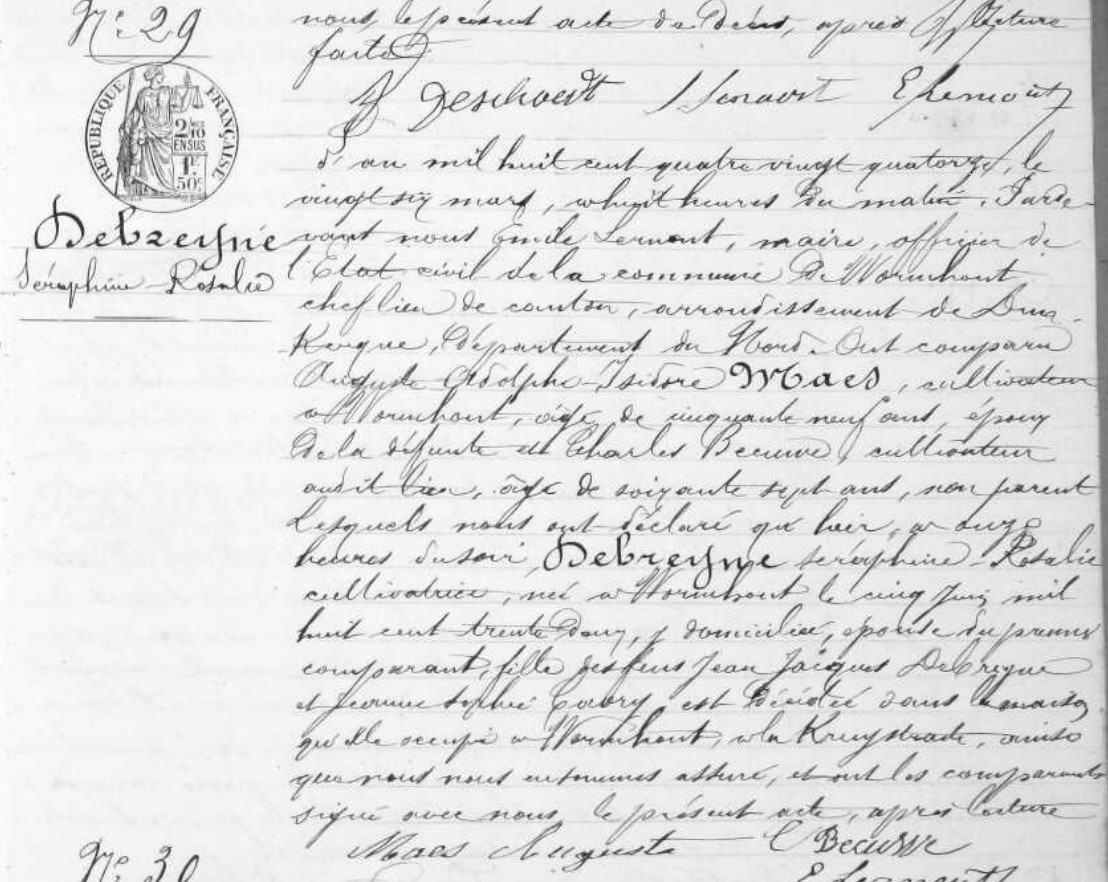 N.º 29
nous, le présent acte de décès, après lecture
faite
Deschoedt
RÉPUBLIQUE FRANÇAISE
2/10 EN SUS
1F 50c
L'an mil huit cent quatre vingt quatorze, le
vingt six mars, à huit heures du matin. Parde-
Debreyne
vant nous Emile Lernout, maire, officier de
Séraphine Rosalie
l'Etat civil de la commune de Wormhout
chef lieu de canton, arrondissement de Dun-
Kerque, département du Nord. Ont comparu
Auguste Adolphe Isidore Maes, cultivateur
à Wormhout, âgé de cinquante neuf ans, époux
de la défunte et Charles Becuwe, cultivateur
audit lieu, âgé de soixante sept ans, non parent
Lesquels nous ont déclaré qu'hier, à onze
heures du soir, Debreyne Séraphine Rosalie
cultivatrice, née à Wormhout le cinq Juin mil
huit cent trente deux, y domiciliée, épouse du premier
comparant, fille des feus Jean Jacques Debreyne
et Jeanne Sophie est décédée dans la maison
qu'elle occupe à Wormhout, à la Kruystraete, ainsi
que nous nous en sommes assuré, et ont les comparants
signé avec nous, le présent acte, après lecture
Maes Auguste C Becuwe
N.º 30
E Lernout